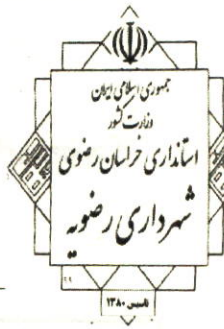 جمهوری اسلامی ایران
وزارت کشور
استانداری خراسان رضوی
شهرداری رضویه
تاسیس ۱۳۸۰